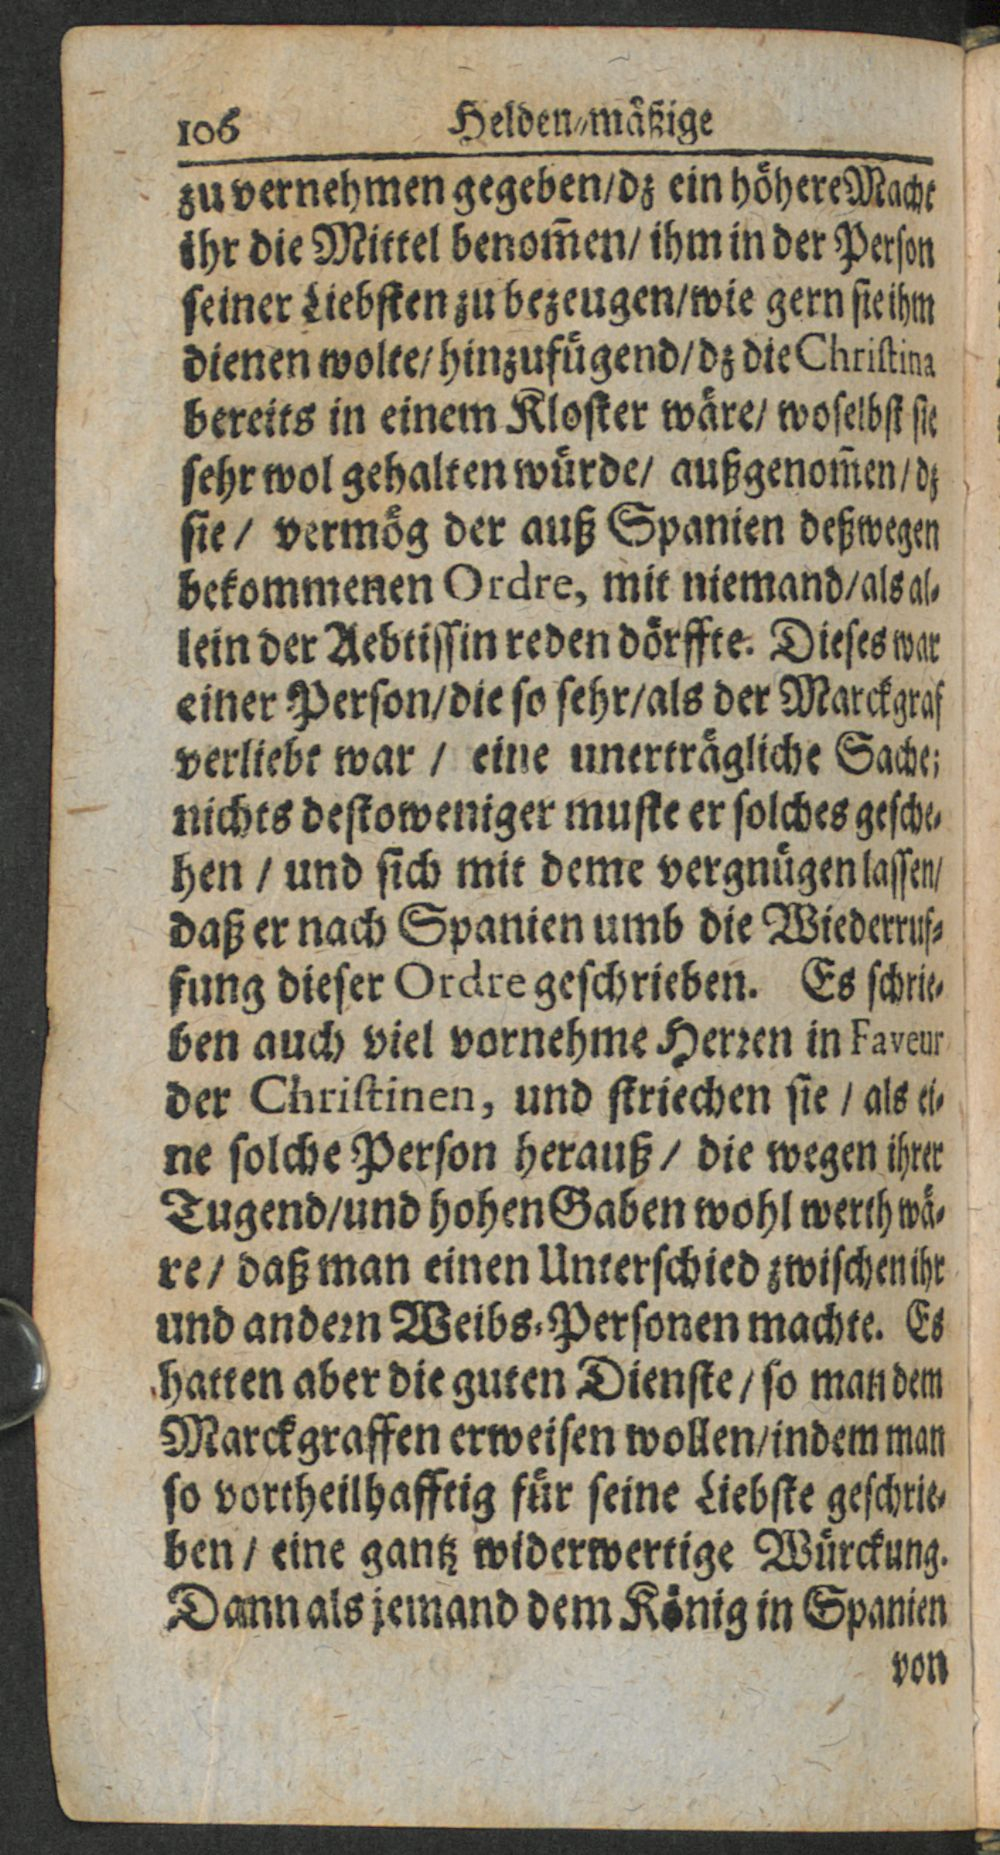 106 Helden-mäßige
zu vernehmen gegeben/dz ein höhere Macht
ihr die Mittel benom̃en/ ihm in der Person
seiner Liebsten zu bezeugen/wie gern sie ihm
dienen wolte/hinzufügend/dz die Christina
bereits in einem Kloster wäre/ woselbst sie
sehr wol gehalten würde/ außgenom̃en/dz
sie/ vermög der auß Spanien deßwegen
bekommenen Ordre, mit niemand/als al-
lein der Aebtissin reden dörffte. Dieses war
einer Person/die so sehr/als der Marckgraf
verliebt war / eine unerträgliche Sache;
nichts destoweniger muste er solches gesche-
hen / und sich mit deme vergnügen lassen/
daß er nach Spanien umb die Wiederruf-
fung dieser Ordre geschrieben. Es schrie-
ben auch viel vornehme Herren in Faveur
der Christinen, und striechen sie / als ei-
ne solche Person herauß / die wegen ihrer
Tugend/und hohen Gaben wohl werth wä-
re / daß man einen Unterschied zwischen ihr
und andern Weibs-Personen machte. Es
hatten aber die guten Dienste / so man dem
Marckgraffen erweisen wollen/indem man
so vortheilhafftig für seine Liebste geschrie-
ben / eine gantz widerwertige Würckung.
Dann als jemand dem König in Spanien
von